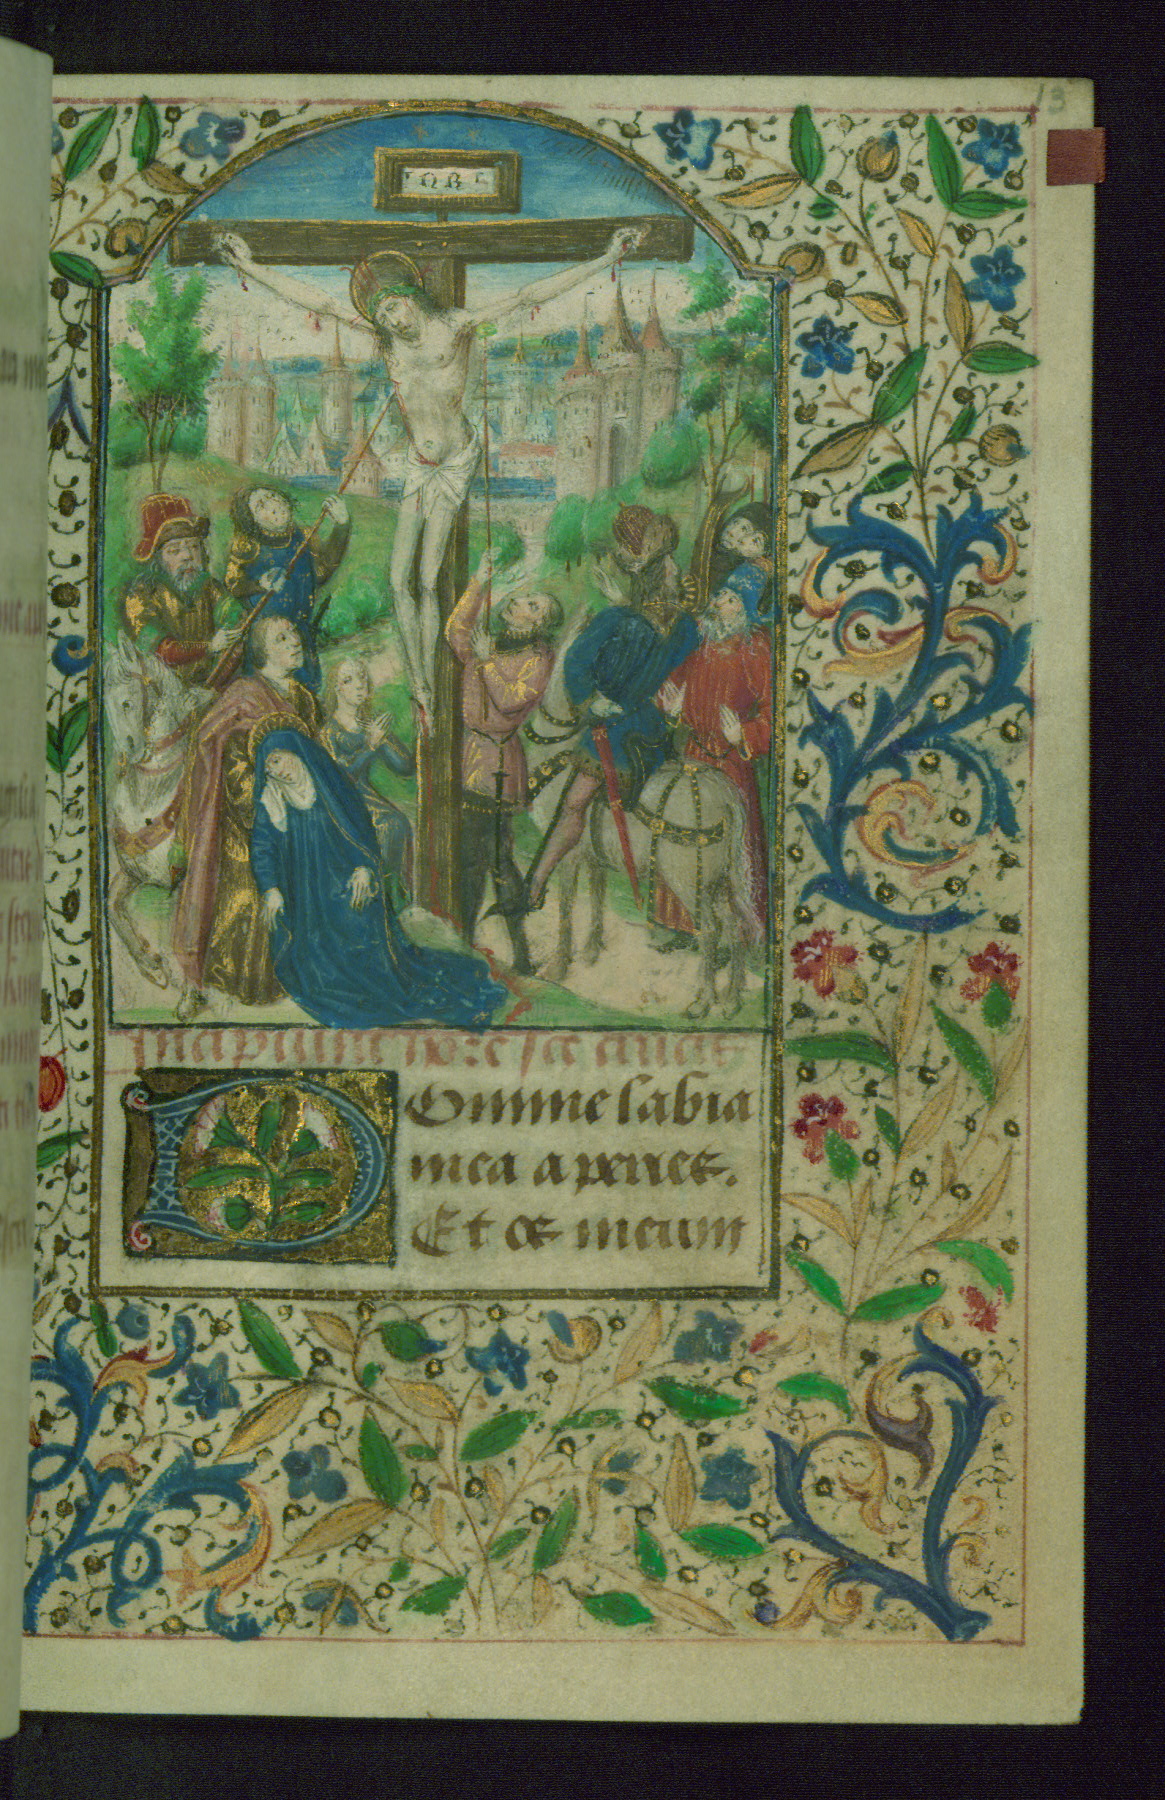 13
Incipiunt hore s&#x307;ce crucis
Domine labia
mea aperies.
Et os meum